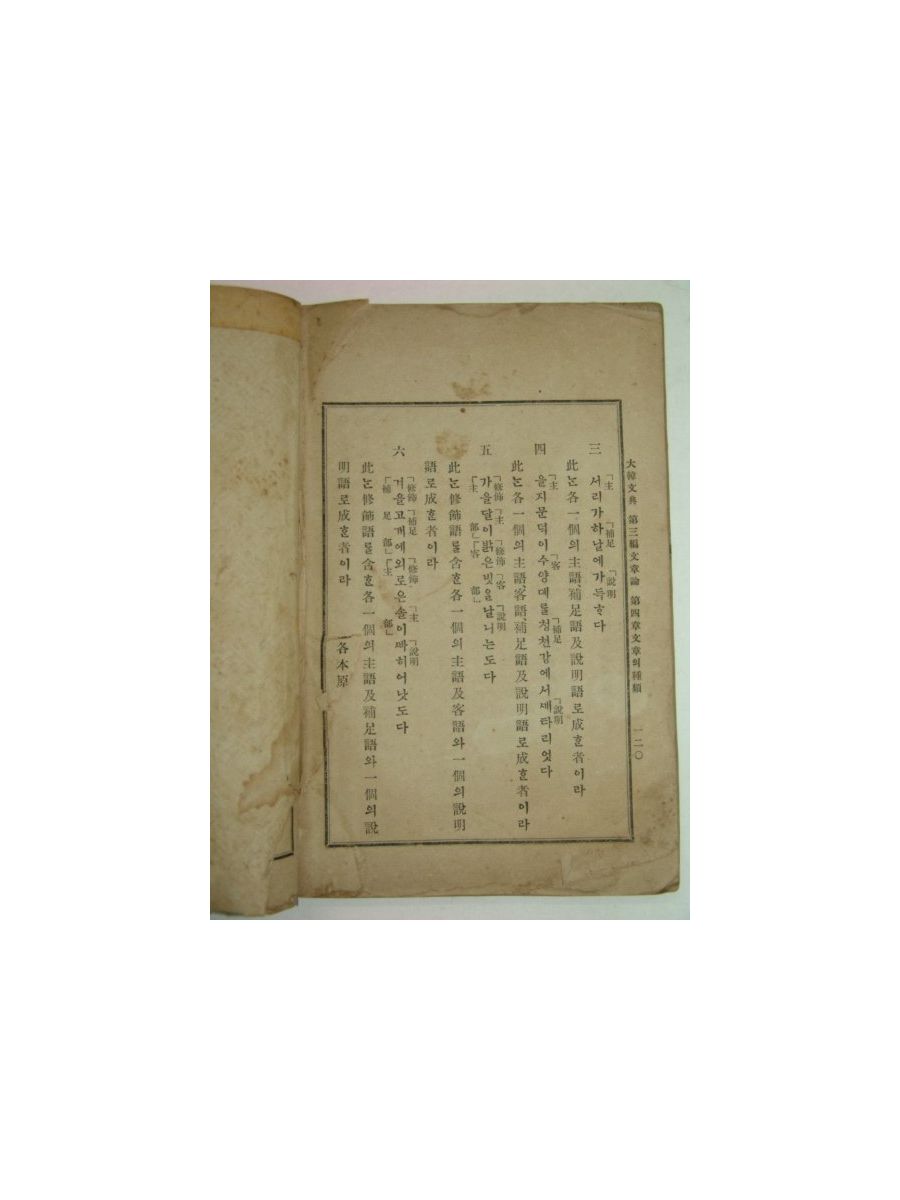 大韓文典 第三編文章論 第四章文章의種類 一二〇
「主 「補足 「說明
三 서리가하날에가득ᄒᆞ다
此ᄂᆞᆫ各一個의主語、補足語及說明語로成ᄒᆞᆫ者이라
「主 「客 「補足 「說明
四 을지문덕이수양데를청천강에서ᄭᅢ타리엇다
此ᄂᆞᆫ各一個의主語、客語、補足語及說明語로成ᄒᆞᆫ者이라
「修飾 「主 「修飾 「客 「說明
五 가을달이밝은빗을날니는도다
「主 部」「客 部」
此ᄂᆞᆫ修飾語를含ᄒᆞᆫ各一個의主語及客語와一個의說明
語로成ᄒᆞᆫ者이라
「修飾 「補足 「修飾 「主 「說明
六 겨울고개에외로은솔이ᄲᅢ히어낫도다
「補 足 部」「主 部」
此ᄂᆞᆫ修飾語를含ᄒᆞᆫ各一個의主語及補足語와一個의說
明語로成ᄒᆞᆫ者이라
各本原